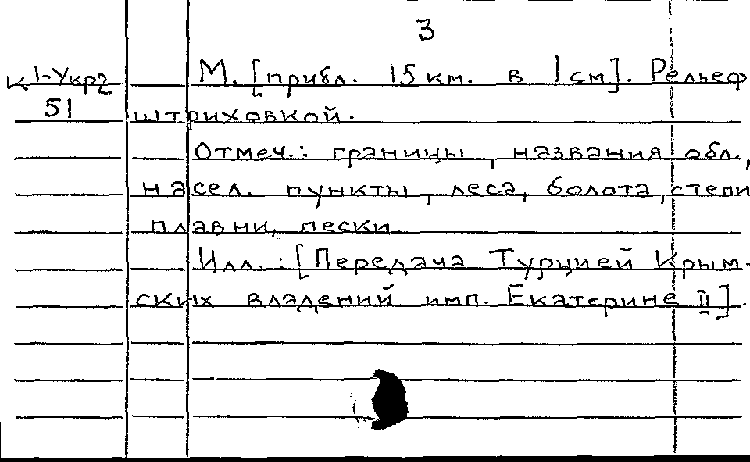 3
К 1-Укр2 М. [прибл. 15 км. в 1 см]. Рельеф
51 штриховкой.
Отмеч.: границы, названия обл.,
насел. пункты, леса, болота, степи
плавни, пески
Илл.: [Передача Турцией Крым-
ских владений имп. Екатерине II].